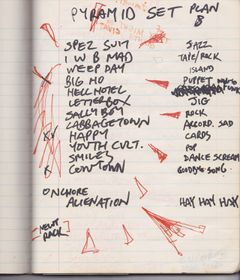 PYRAMID SET PLAN
8
SPEZ SUIT JAZZ
I W B MAD TAPE/ROCK
WEEP DAY ISLAND
X BIG MO PUPPET
HELL HOTEL
LETTERBOX JIG
SALLY BOY ROCK
CABBAGETOWN ACCORD. SAD
XX HAPPY CARDS
YOUTH CULT. POP
SMILES DANCE SCREAM
X COWTOWN GOODBYE SONG.
ONCHORE
ALIENATION HAY HAY HAY
NEWT
BACK